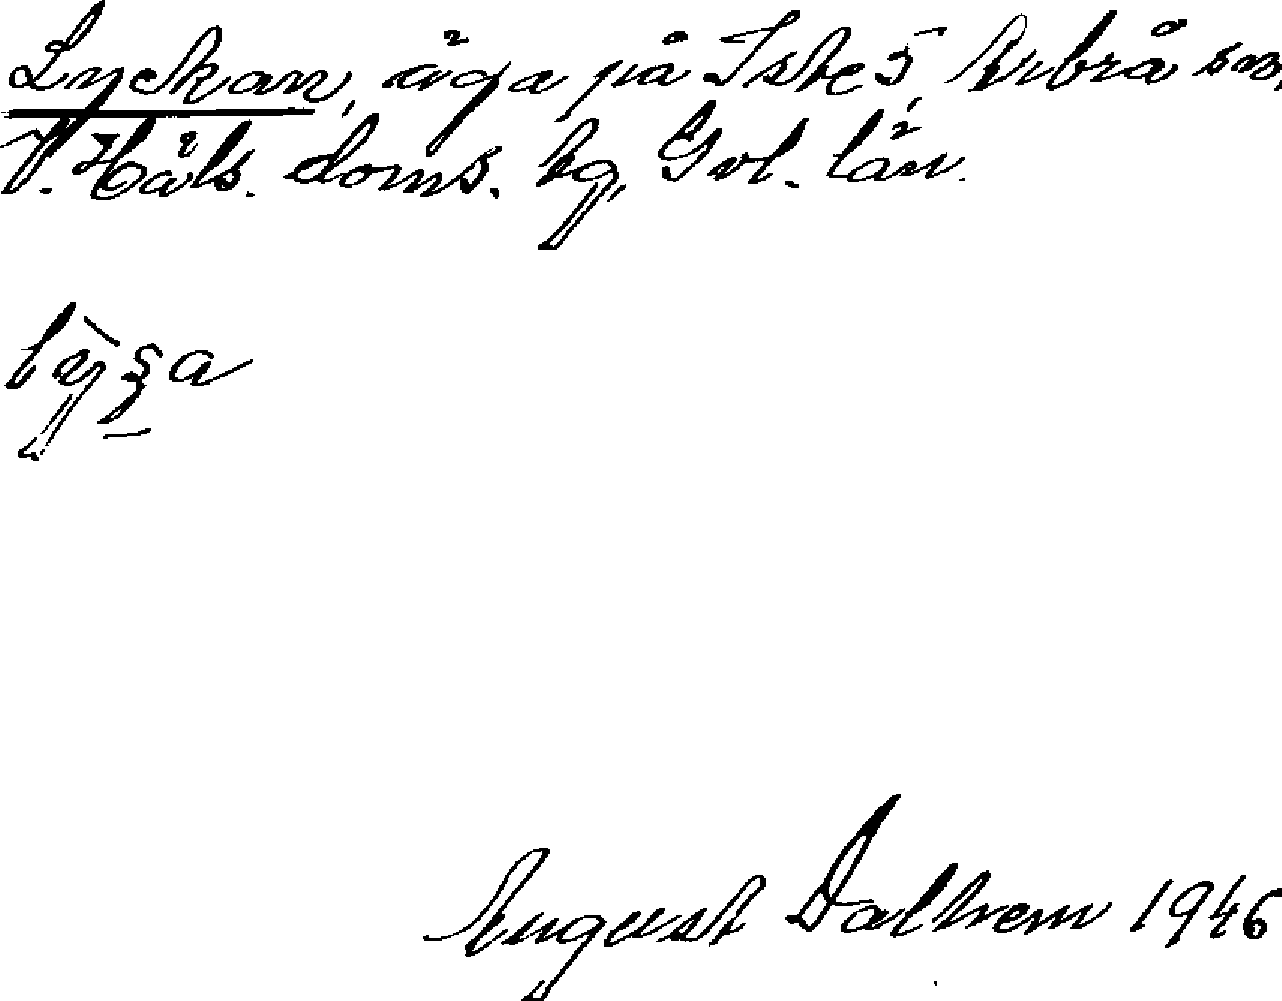 Lyckan, äga på Iste 5, Arbrå sn,
V. Häls. doms. bg, Gvl. län.
August Dalhem 1946